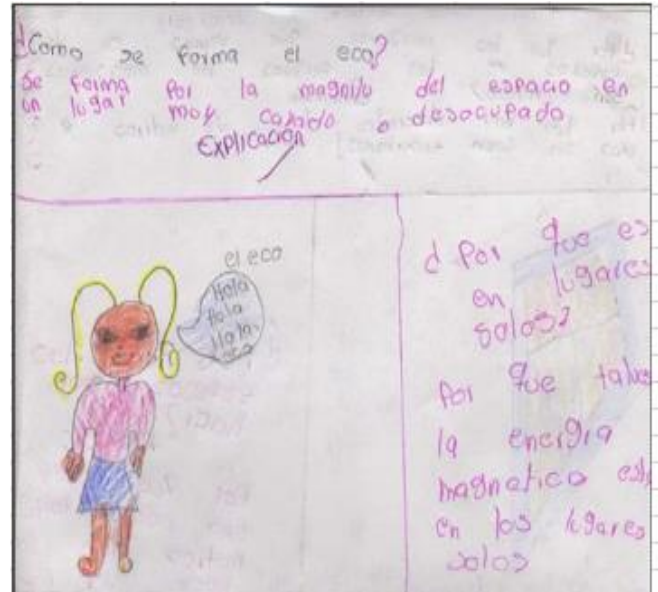 ¿Como se forma el eco?
Se forma por la magnitu del espacio en
un lugar moy callado o desocupado
EXPlicación
el eco
Hola
Hola
Hola
¿Por que es
en lugares
solos?
Por que talves
la energia
magnetica esta
en los lugares
solos